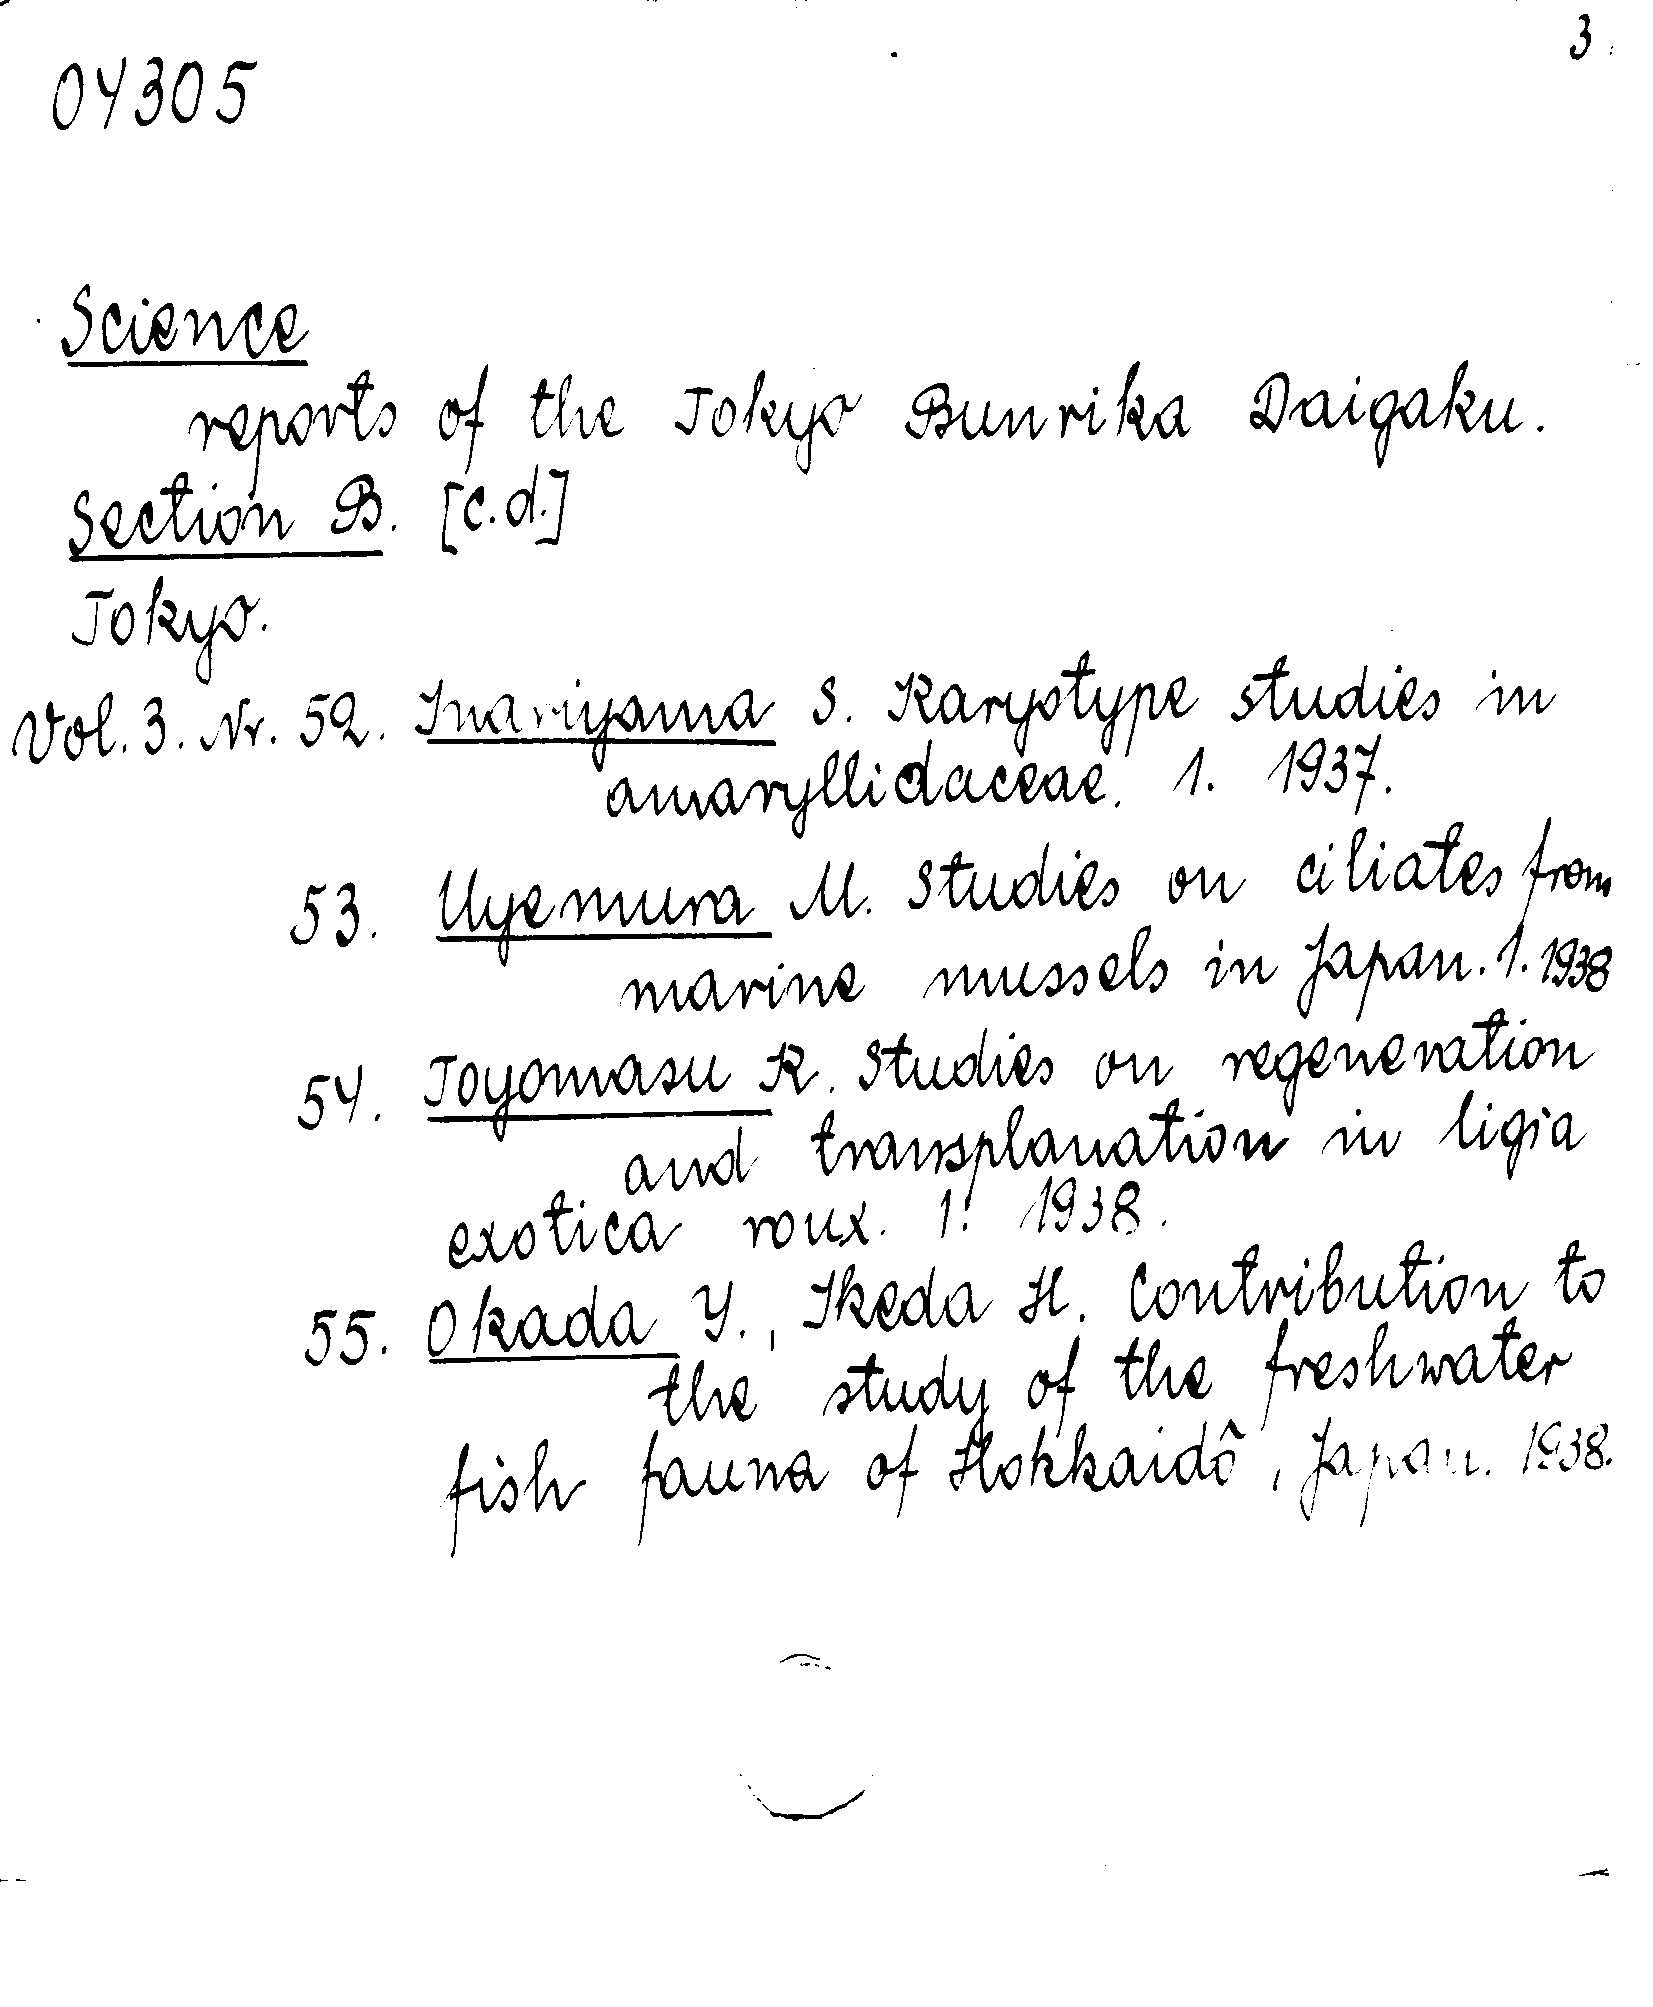 3
04305
Science
reports of the Tokyo Bunrika Daigaku.
Section B. [c.d.]
Tokyo.
Vol. 3. Nr. 52. Inariyama S. Karyotype studies in
amaryllidaceae. 1. 1937.
53. Uyemura M. Studies on ciliates from
marine mussels in Japan. 1. 1938
54. Toyomasu K. Studies on regeneration
and transplanation in ligia
exotica roux. 1. 1938.
55. Okada Y., Ikeda H. Contribution to
the study of the freshwater
fish fauna of Hokkaidô, Japan. 1938.